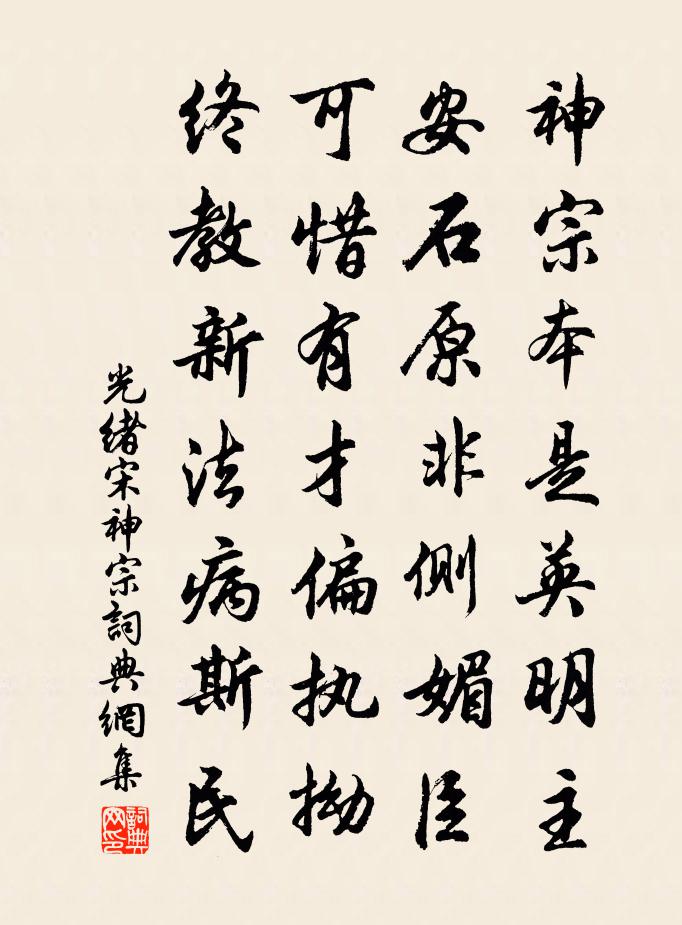 神宗本是英明主
安石原非側媚臣
可惜有才偏执拗
终教新法病斯民
光绪宋神宗詞典網集
詞典網印